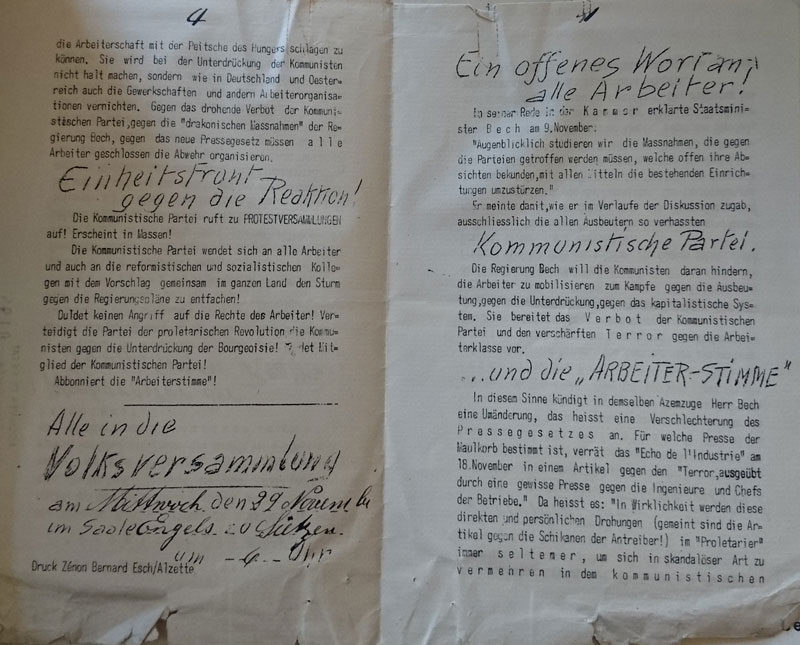 4
die Arbeiterschaft mit der Peitsche des Hungers schlagen zu
können. Sie wird bei der Unterdrückung der Kommunisten
nicht halt machen, sondern wie in Deutschland und Oester-
reich auch die Gewerkschaften und andern Arbeiterorganisa-
tionen vernichten. Gegen das drohende Verbot der Kommuni-
stischen Partei,gegen die "drakonischen Massnahmen" der Re-
gierung Bech, gegen das neue Pressegesetz müssen a l l e
Arbeiter geschlossen die Abwehr organisieren.
Einheitsfront
gegen die Reaktion!
Die Kommunistische Partei ruft zu PROTESTVERSAMMLUNGEN
auf! Erscheint in Massen!
Die Kommunistische Partei wendet sich an alle Arbeiter
und auch an die reformistischen und sozialistischen Kolle-
gen mit dem Vorschlag gemeinsam im ganzen Land den Sturm
gegen die Regierungspläne zu entfachen!
Duldet keinen Angriff auf die Rechte des Arbeiter! Ver-
teidigt die Partei der proletarischen Revolution die Kommu-
nisten gegen die Unterdrückung der Bourgeoisie! Mit-
glied der Kommunistischen Partei!
Abbonniert die "Arbeiterstimme"!
Alle in die
Volksversammlung
am Mittwoch den 29 Novembe
im Saale Engels zu
um Uhr
Druck Zénon Bernard Esch/Alzette
Ein offenes Wort an
alle Arbeiter!
In seiner Rede in der K a m m e r erklärte Staatsmini-
ster B e c h am 9.November:
"Augenblicklich studieren wir die Massnahmen, die gegen
die Parteien getroffen werden müssen, welche offen ihre Ab-
sichten bekunden,mit allen Mitteln die bestehenden Einrich-
tungen umzustürzen."
Er meinte damit,wie er im Verlaufe der Diskussion zugab,
ausschliesslich die allen Ausbeutern so verhassten
Kommunistische Partei.
Die Regierung Bech will die Kommunisten daran hindern,
die Arbeiter zu mobilisieren zum Kampfe gegen die Ausbeu-
tung,gegen die Unterdrückung,gegen das kapitalistische Sys-
tem. Sie bereitet das V e r b o t der Kommunistischen
Partei und den verschärften T e r r o r gegen die Arbei-
terklasse vor.
...und die „ARBEITER-STIMME"
In diesem Sinne kündigt in demselben Azemzuge Herr Bech
eine Umänderung, das heisst eine Verschlechterung des
P r e s s e g e s e t z e s an. Für welche Presse der
Maulkorb bestimmt ist, verrät das "Echo de l'Industrie" am
18.November in einem Artikel gegen den "Terror,ausgeübt
durch eine gewisse Presse gegen die Ingenieure und Chefs
der Betriebe." Da heisst es: "In Wirklichkeit werden diese
direkten und persönlichen Drohungen (gemeint sind die Ar-
tikel gegen die Schikanen der Antreiber!) im "Proletarier"
immer s e l t e n e r, um sich in skandalöser Art zu
v e r m e h r e n i n d e m k o m m u n i s t i s c h e n